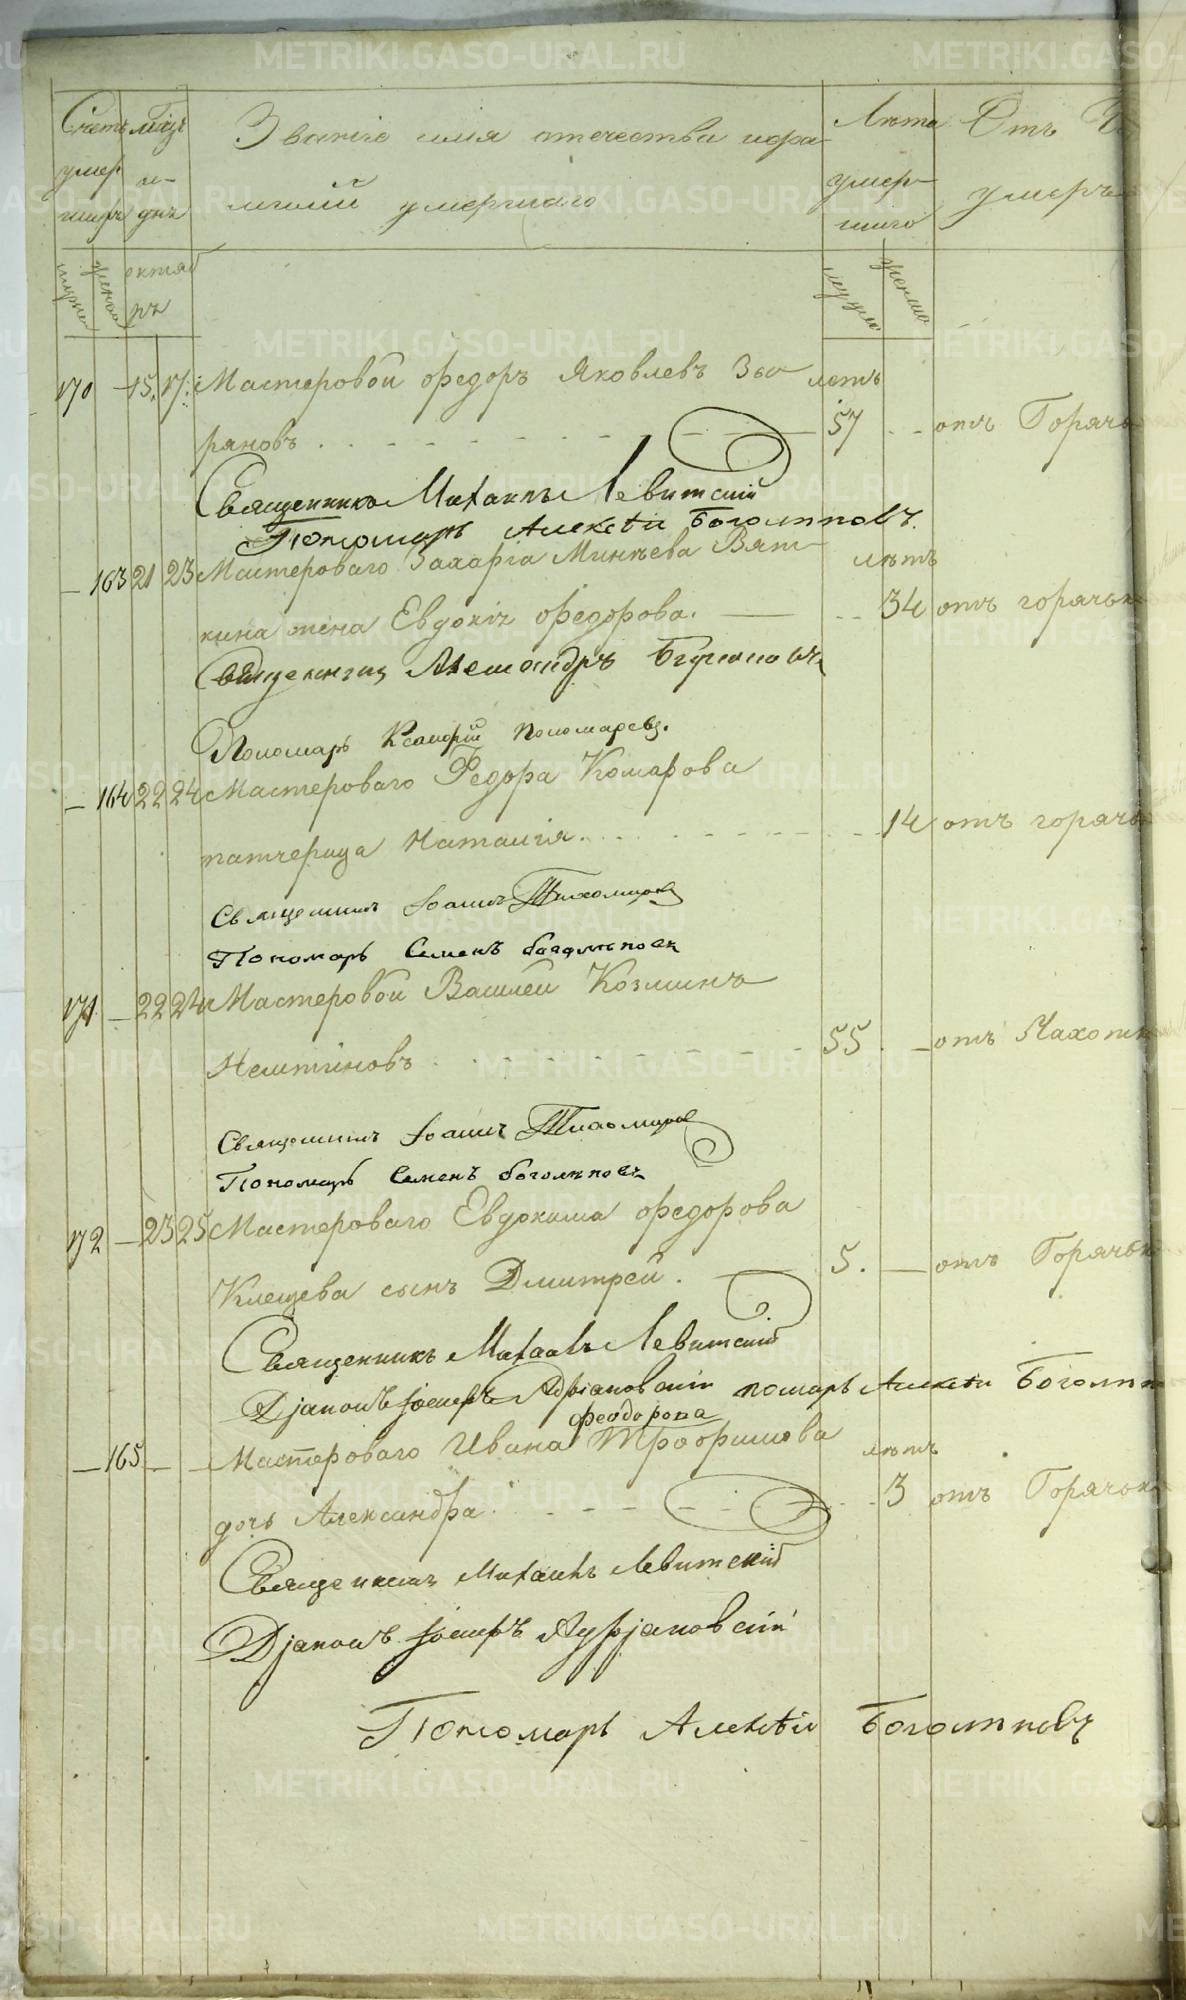 Счетъ
умер
шихъ
мѣсяцъ
и
днь
Званіе имя отечество и фа
милии умершаго
Лѣта
умер-
шаго
Отъ Че
умеръ
муже
женск
октяб
рь
муж
женск
170 — 15. 17. Мастеровой Федоръ Яковлевъ лѣтъ
ряновъ 57 — отъ Горячк
Священникъ Михаилъ Левитский
Пономарь Алексѣй Боголѣповъ.
— 163 21 23 Мастероваго Захара Минѣева Вят- лѣтъ
кина жена Евдокія Федорова. — 34 отъ горячьк
Священникъ Александръ
Пономарь Пономаревъ.
— 164 22 24 Мастероваго Федора Комарова
патчерица Наталія. 14 отъ горячьк
Священникъ Іоаннъ Тихомировъ
Пономарь Семенъ Боголѣповъ
171 — 22 24 Мастеровой Василеи Козминъ
55 — отъ Чахотк
Священникъ Іоаннъ Тихомировъ
Пономарь Семенъ Боголѣповъ
172 — 23 25 Мастероваго Евдокима Федорова
Клещева сынъ Дмитрей. 5. — отъ Горячьк
Священникъ Михаилъ Левитский
Діаконъ Іосифъ Адріановскій помарь Алексѣй Боголѣп
феодорова
— 165 — — Мастероваго Ивана Трофимова лѣтъ
дочь Александра 3 отъ Горячьк
Священникъ Михаилъ Левитский
Діаконъ Іосифъ Адріановскій
Пономарь Алексѣй Боголѣповъ
METRIKI.GASO-URAL.RU